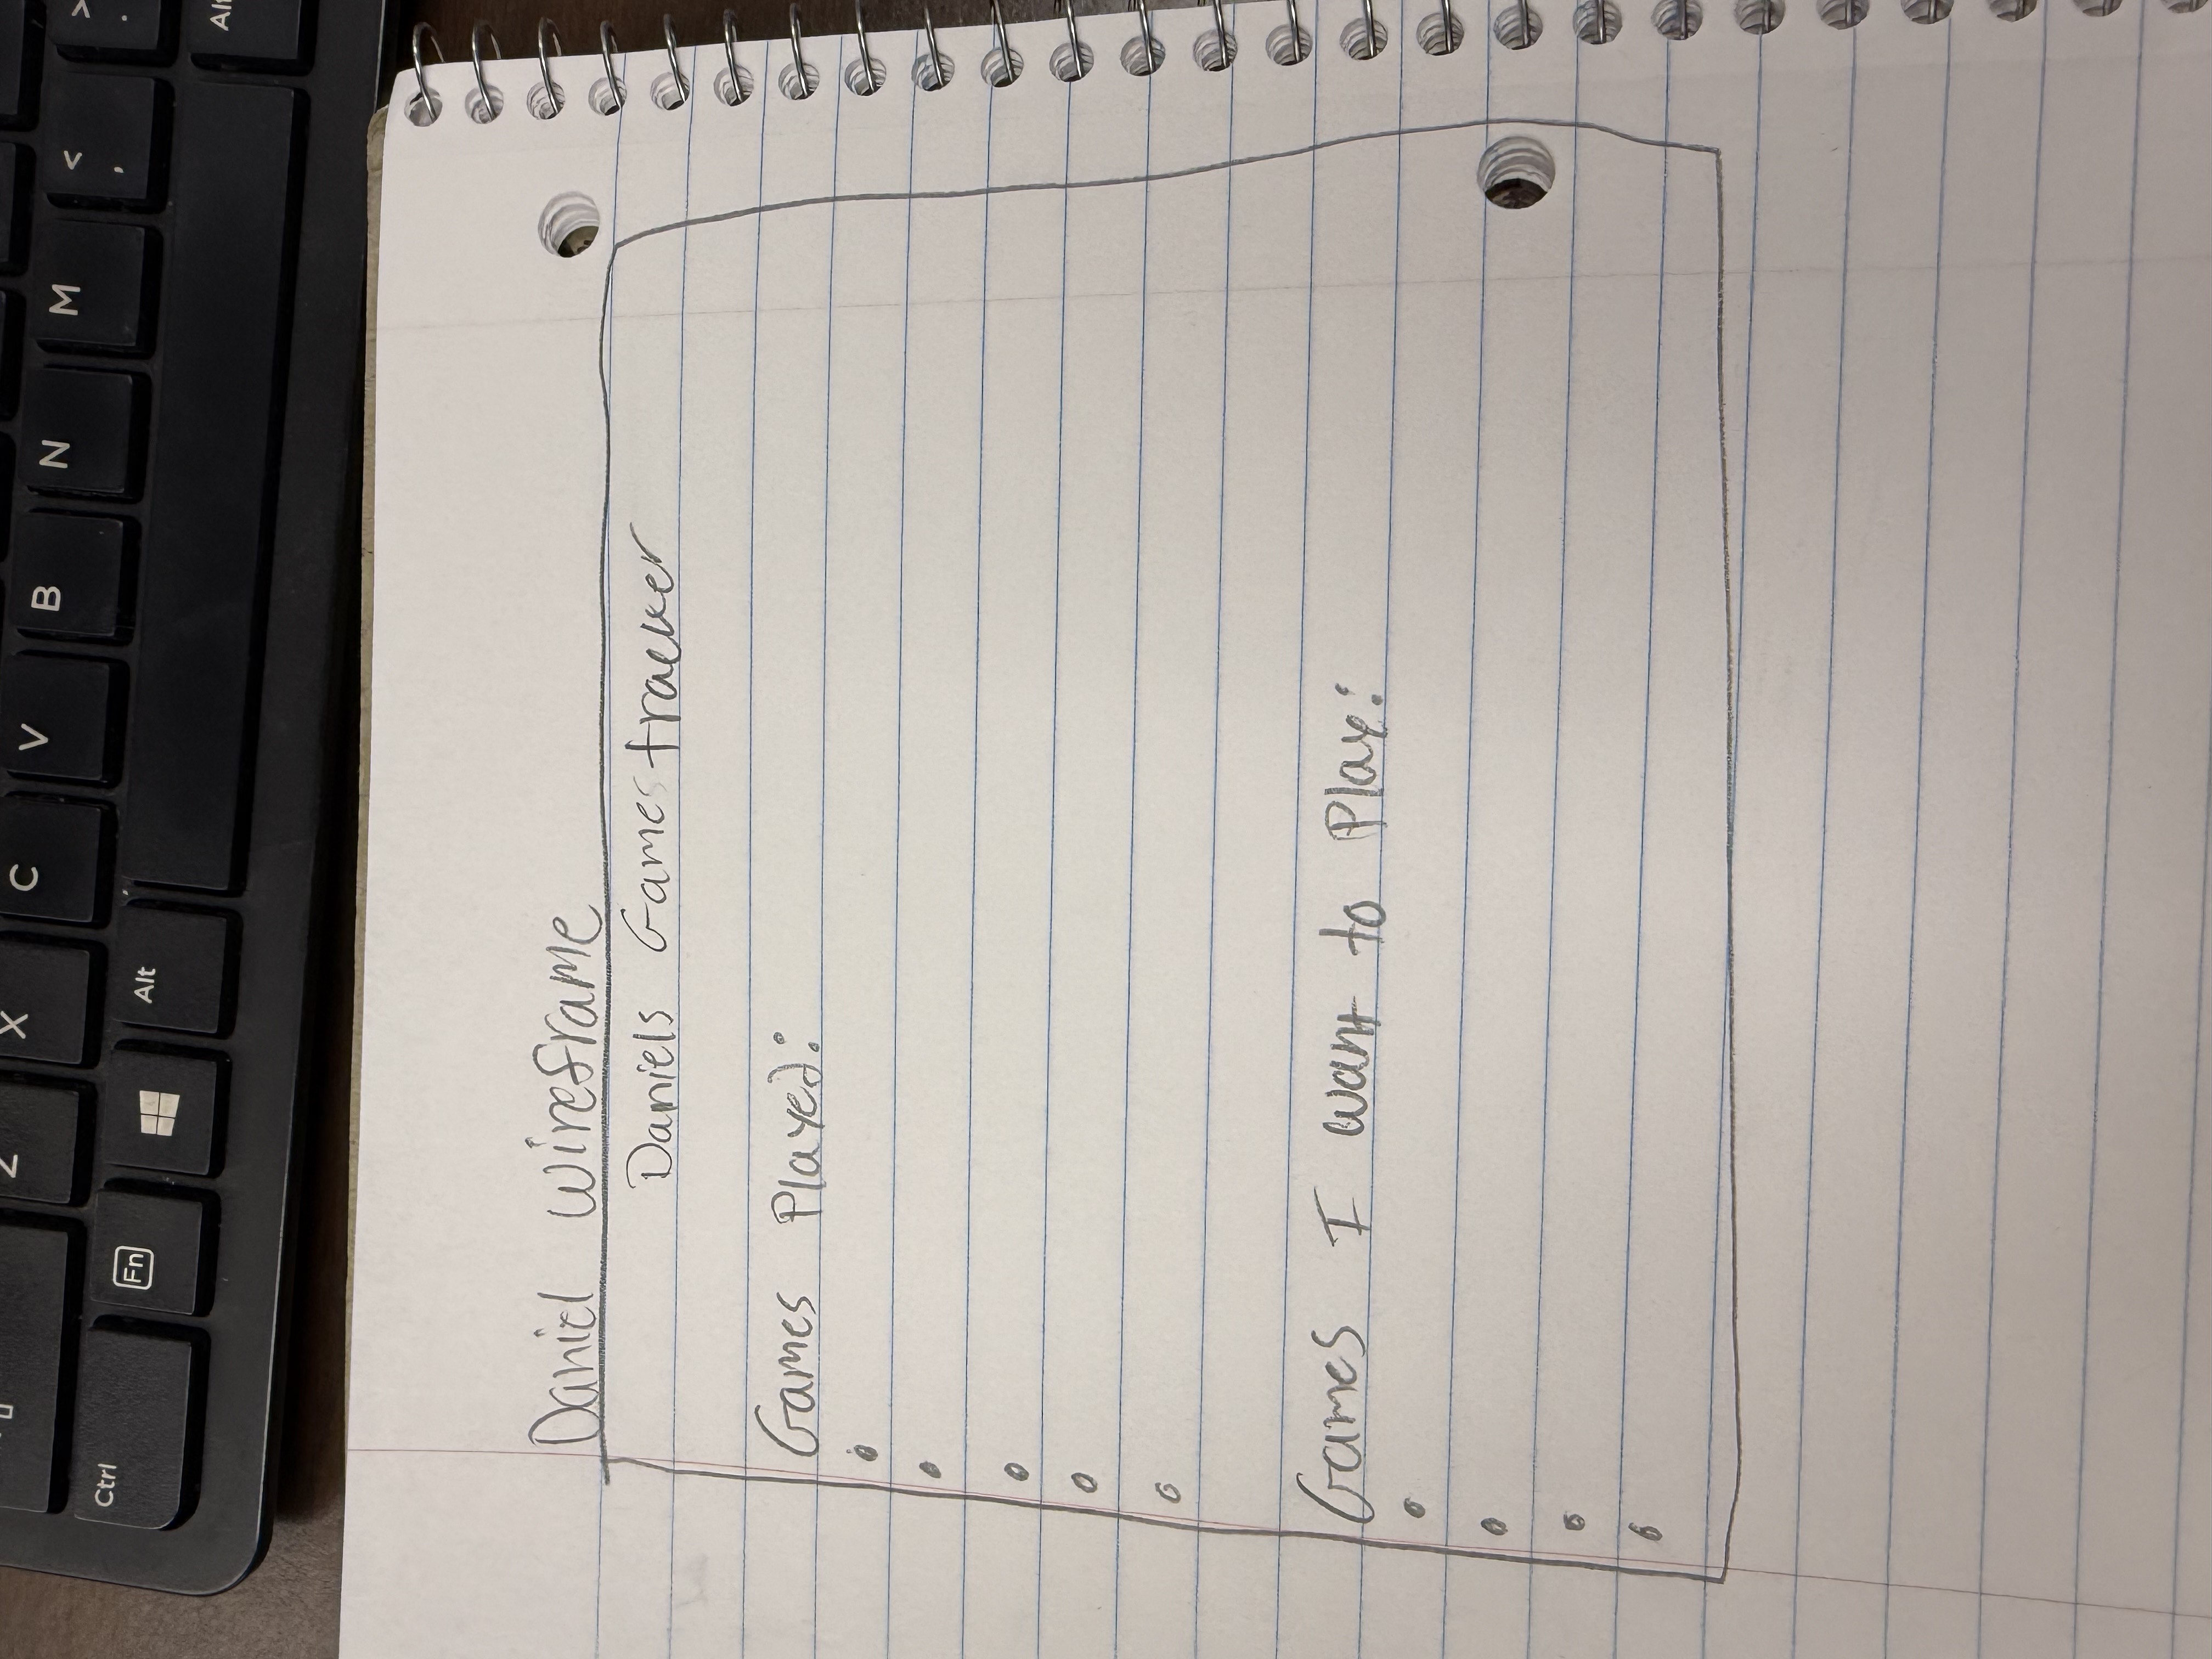 Z X C V B N M < >
, .
Ctrl Fn Alt Alt
Daniel Wireframe
Daniels Games tracker
Games Played:
Games I want to Play: